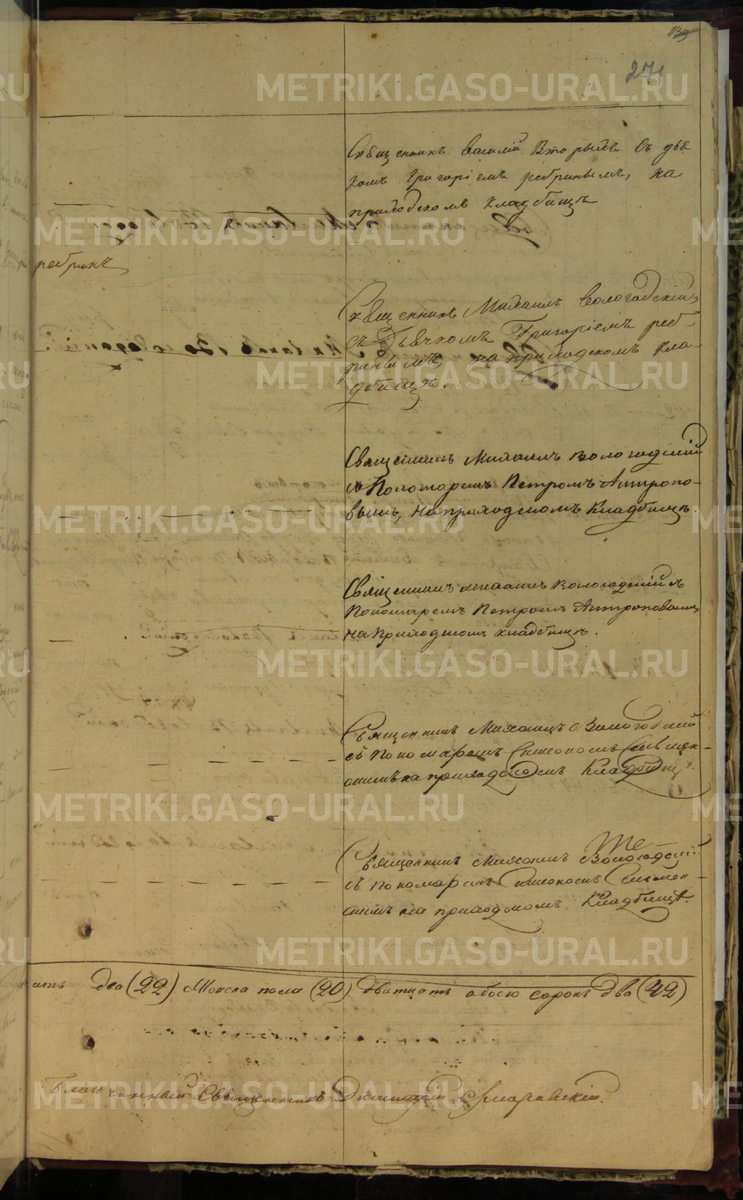 271
Священникъ Василій Вторыхъ съ дья
комъ Григоріемъ ребринымъ, на
приходскомъ кладбищѣ
ребринъ
Священникъ Михаилъ Вологодскій
съ Дьячкомъ Григоріемъ реб-
ринымъ, на приходскомъ кла-
дбищѣ.
Священникъ Михаилъ Вологодскій
съ Пономаремъ Петромъ Антропо-
вымъ, на приходскомъ Кладбищѣ.
Священникъ михаилъ Вологодскій съ
Пономаремъ Петромъ Антроповымъ
на Приходскомъ кладбищѣ.
Священникъ Михаилъ Вологодскій
съ Пономаремъ
на приходскомъ Кладбищѣ.
Священникъ Михаилъ Вологодскій
съ пономаремъ
на приходскомъ Кладбищѣ.
ать два (22) Женска пола (20) дватцать обоего сорокъ два (42)
Благочинный Священникъ Димитрій
METRIKI.GASO-URAL.RU